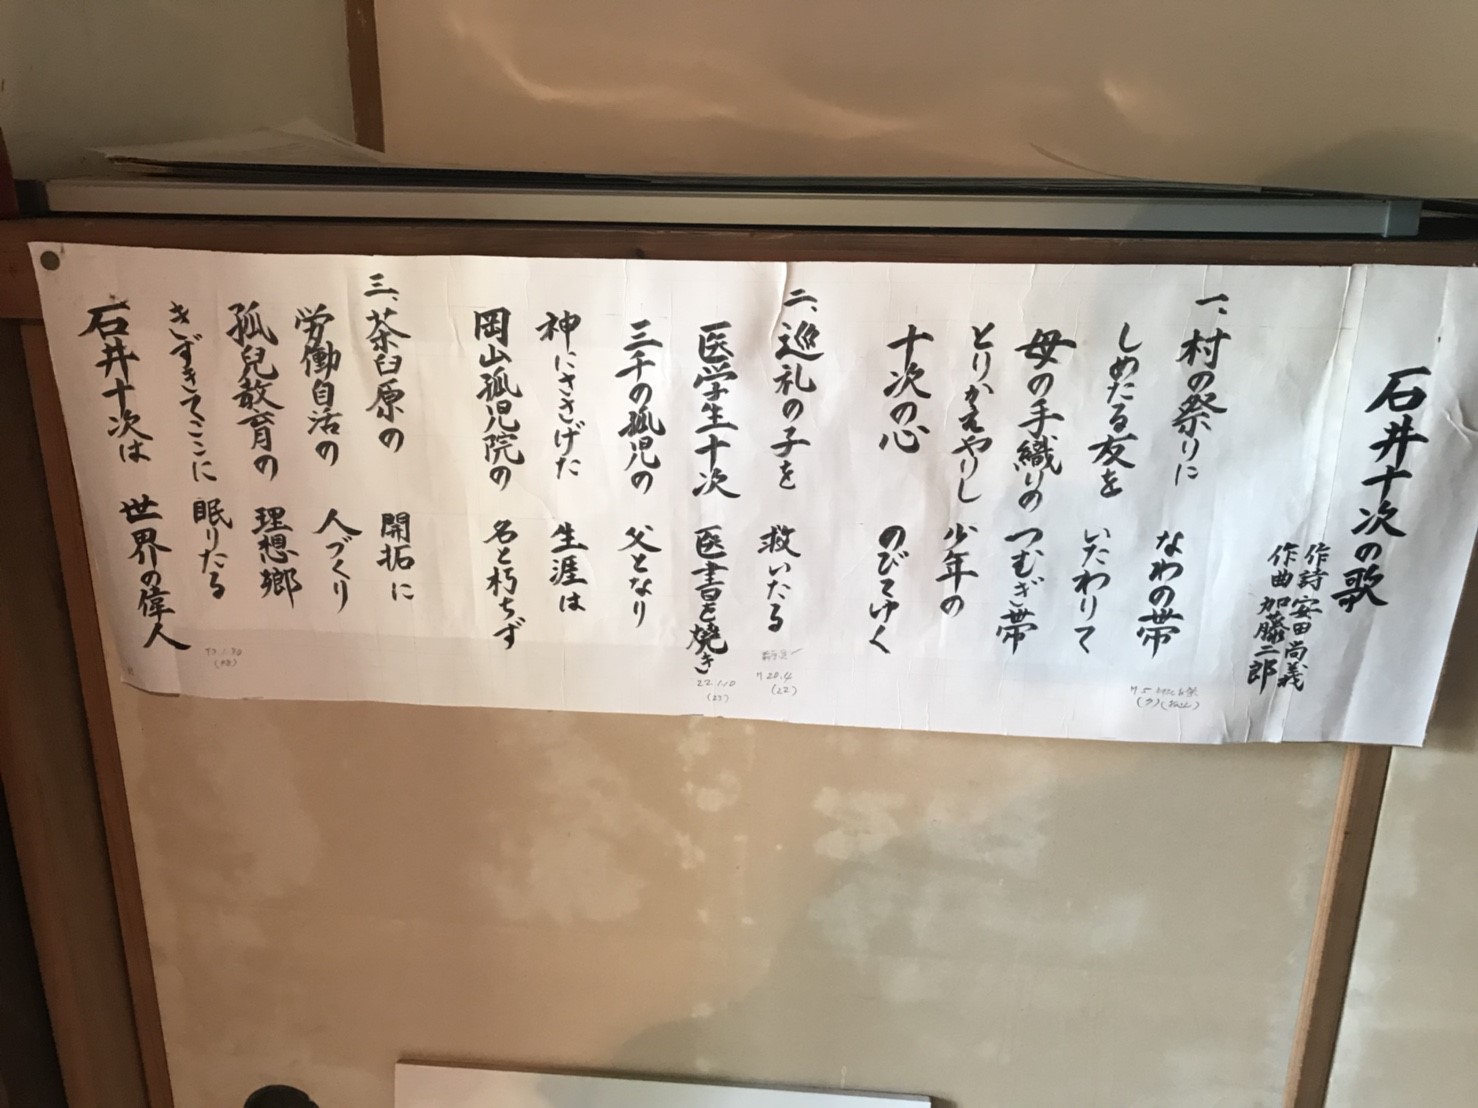 石井十次の歌
作詩 安田尚義
作曲 加藤二郎
一、村の祭りに なわの帯
しめたる友を いたわりて
母の手織りの つむぎ帯
とりかえやりし 少年の
十次の心 のびてゆく
二、巡礼の子を 救いたる
医学生十次 医書を焼き
三千の孤児の 父となり
神にささげた 生涯は
岡山孤児院の 名と朽ちず
三、茶臼原の 開拓に
労働自活の 人づくり
孤兒教育の 理想郷
きずきてここに 眠りたる
石井十次は 世界の偉人